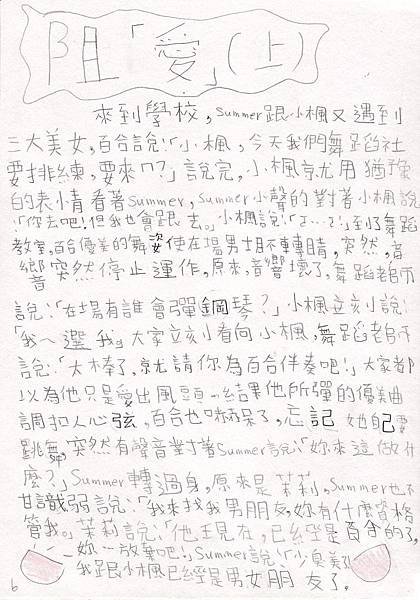 阻「愛」(上)
來到學校，summer跟小楓又遇到
三大美女，百合說：「小楓，今天我們舞蹈社
要排練，要來ㄇ？」說完，小楓就用猶豫
的表情看著summer，summer小聲的對著小楓說
：「你去吧！但我也會跟去。」小楓說：「ㄜ…ㄜ！」到了舞蹈
教室，百合優美的舞姿使在場男士目不轉睛，突然，音
響突然停止運作，原來，音響壞了，舞蹈老師
說：「在場有誰會彈鋼琴？」小楓立刻說：
「我~選我」大家立刻看向小楓，舞蹈老師
說：「太棒了，就請你為百合伴奏吧！」大家都
以為他只是愛出風頭…結果他所彈的優美曲
調扣人心弦，百合也嚇呆了，忘記 她自己要
跳舞，突然有聲音對著Summer說：「妳來這做什
麼？」Summer轉過身，原來是茉莉，Summer也不
甘識弱說：「我來找我男朋友，妳有什麼資格
管我。」茉莉說：「他王見在，已經是百合的了，
妳~放棄吧！」Summer說：「少臭美了
我跟小楓已經是男女朋友了。
6